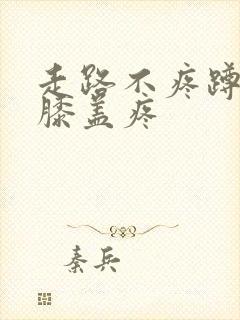 走路不疼蹲
膝盖疼
秦兵